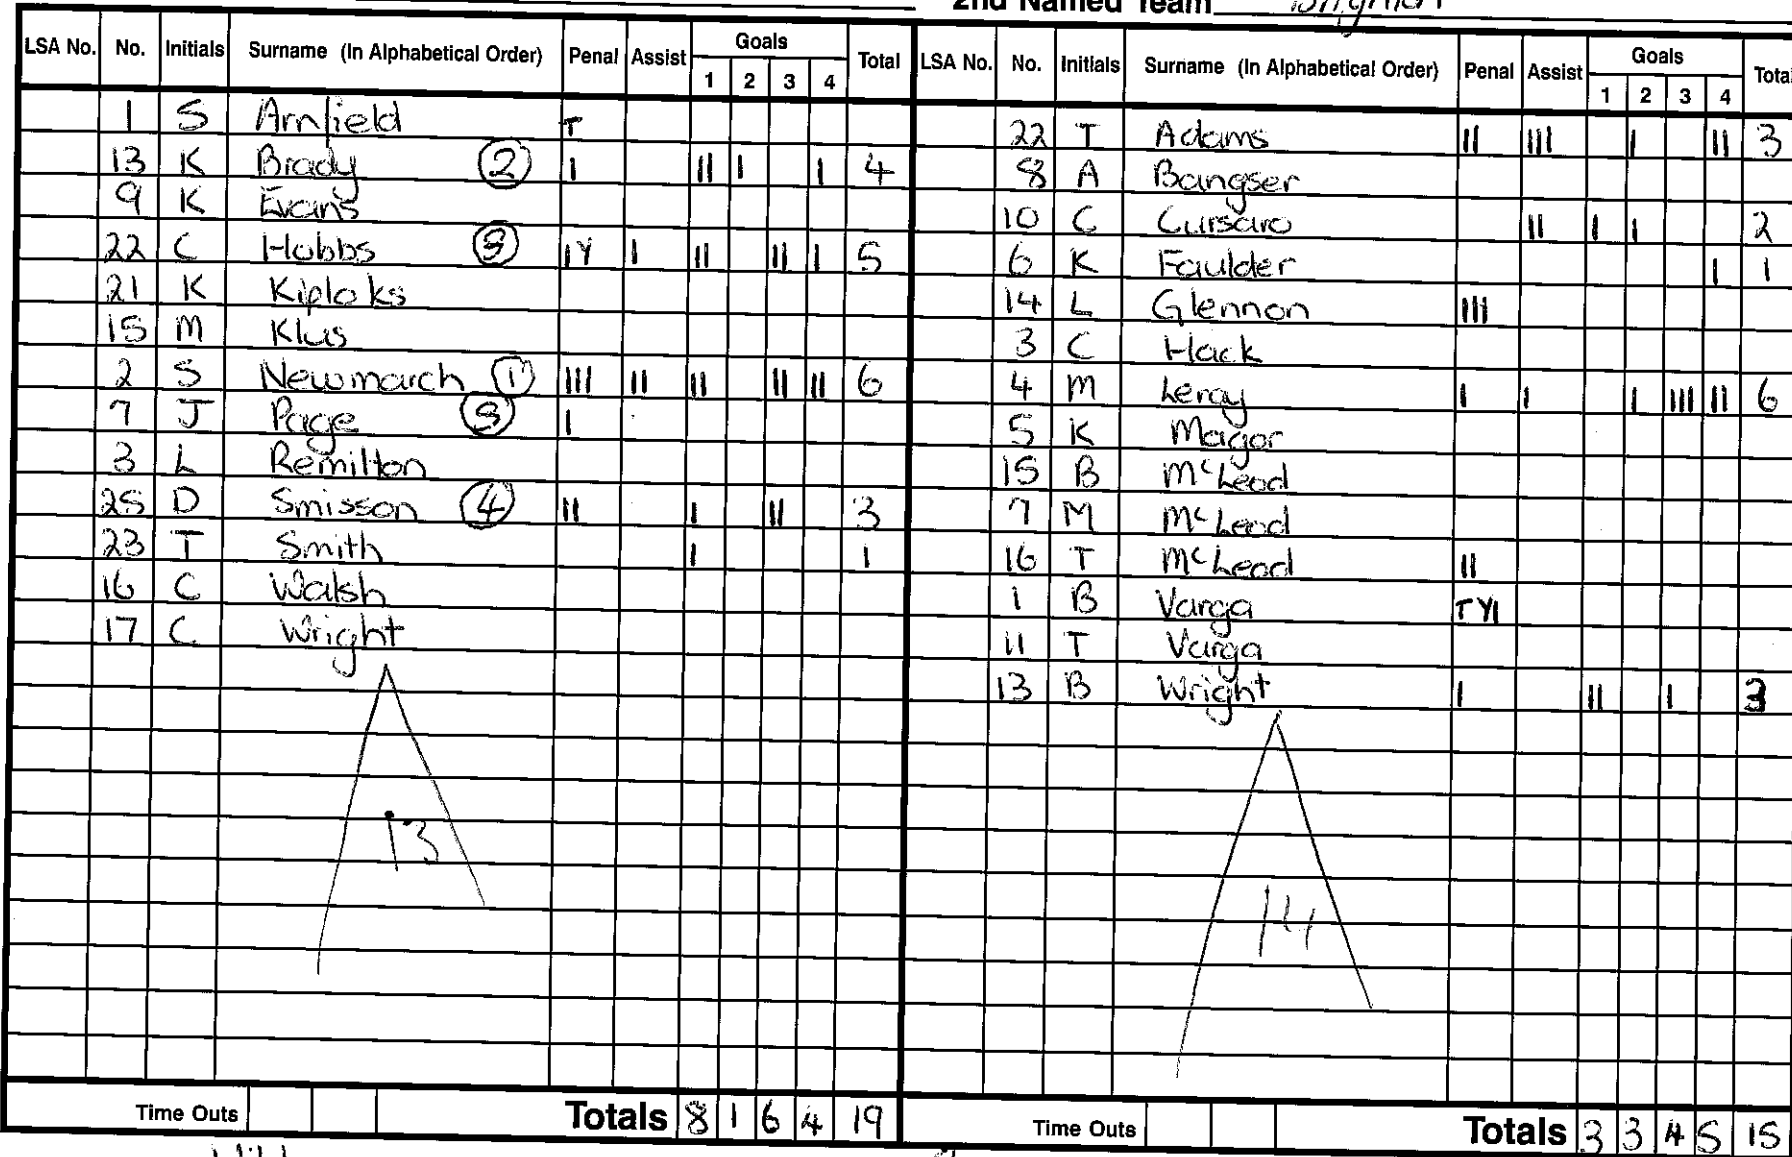 2nd Named Team
LSA No. No. Initials Surname (In Alphabetical Order) Penal Assist Goals 1 2 3 4 Total
1 S Arnfield T
13 K Brady (2) I II I I 4
9 K Evans
22 C Hobbs IY I II II I 5
21 K Kiploks
15 M Klus
2 S Newmarch (1) III II II II II 6
7 J Page I
3 L Remilton
25 D Smisson (4) II I II 3
23 T Smith I 1
16 C Walsh
17 C Wright
13
Time Outs Totals 8 1 6 4 19
LSA No. No. Initials Surname (In Alphabetical Order) Penal Assist Goals 1 2 3 4 Total
22 T Adams II III I II 3
8 A Bangser
10 C Cursaro II I I 2
6 K Faulder I 1
14 L Glennon III
3 C Hack
4 M Leray I I I III II 6
5 K Magor
15 B McLeod
7 M McLeod
16 T McLeod II
1 B Varga TYI
11 T Varga
13 B Wright I II I 3
14
Time Outs Totals 3 3 4 5 15